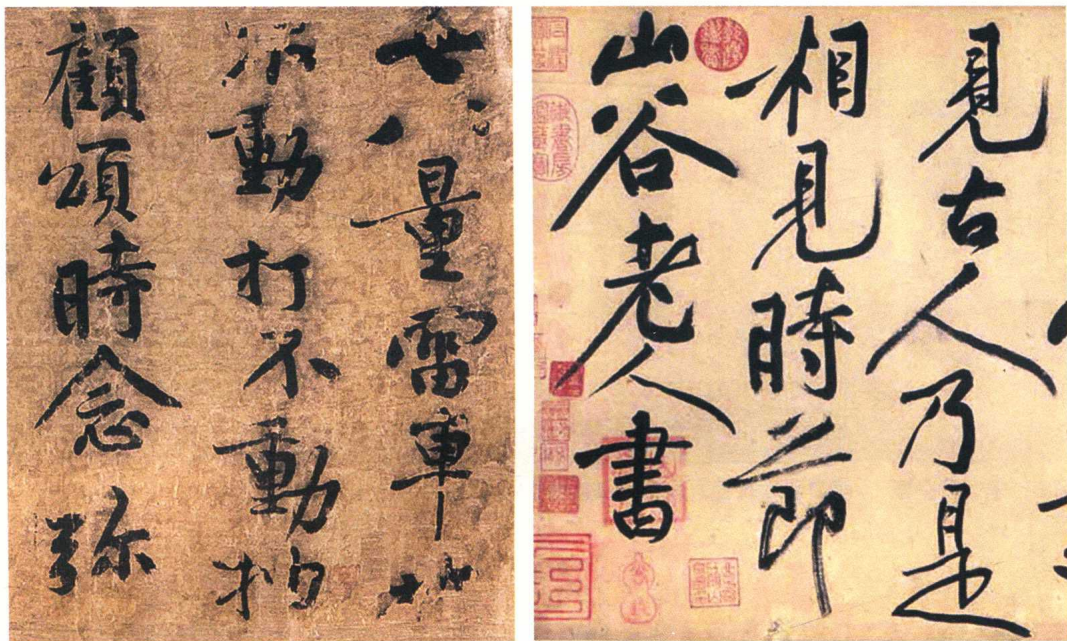 世八量雷車
動打不動
顧頌時念弥
見古人乃是
相見時節
山谷老人書